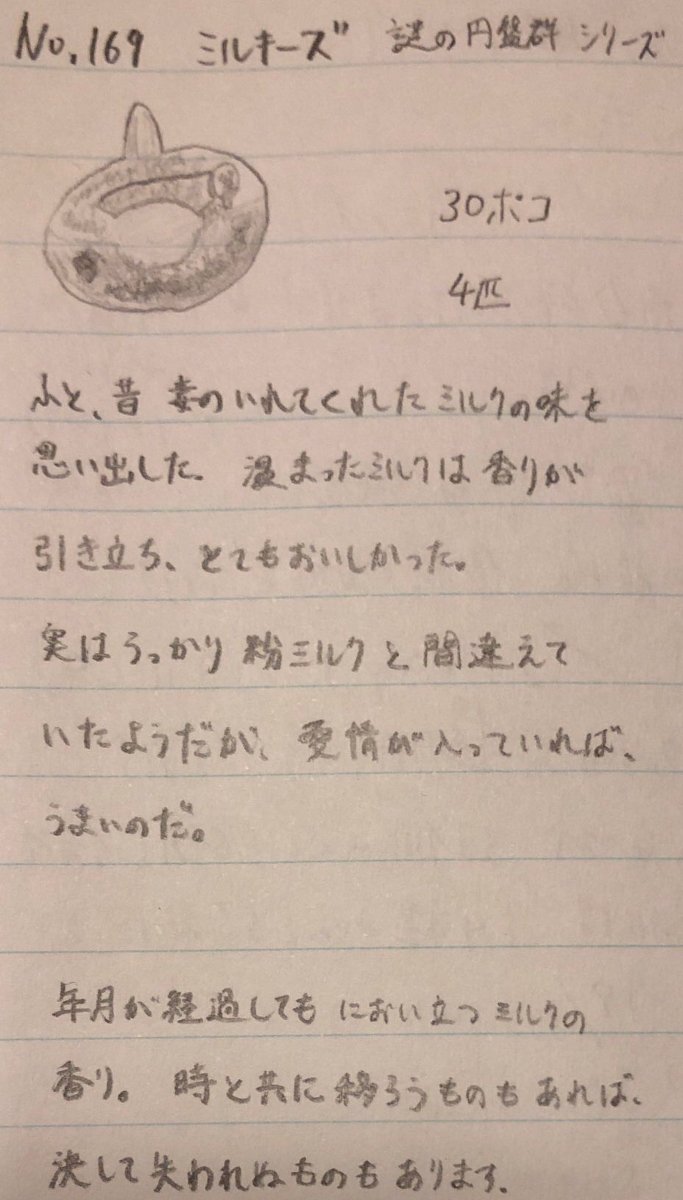 No.169 ミルキーズ 謎の円盤群 シリーズ
30ポコ
4匹
ふと、昔 妻のいれてくれたミルクの味を
思い出した。温まったミルクは香りが
引き立ち、とてもおいしかった。
実はうっかり粉ミルクと間違えて
いたようだが、愛情が入っていれば、
うまいのだ。
年月が経過してもにおい立つミルクの
香り。時と共に移ろうものもあれば、
決して失われぬものもあります。